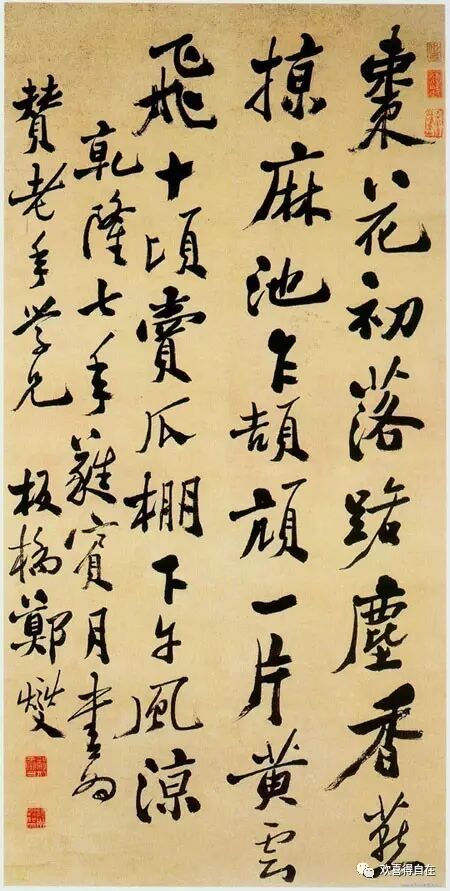 棗花初落路塵香燕
掠麻池乍頡頏一片黄雲
飛十頃賣瓜棚下午風凉
乾隆七年蕤賓月書爲
贊老年學兄 板橋鄭燮
欢喜得自在